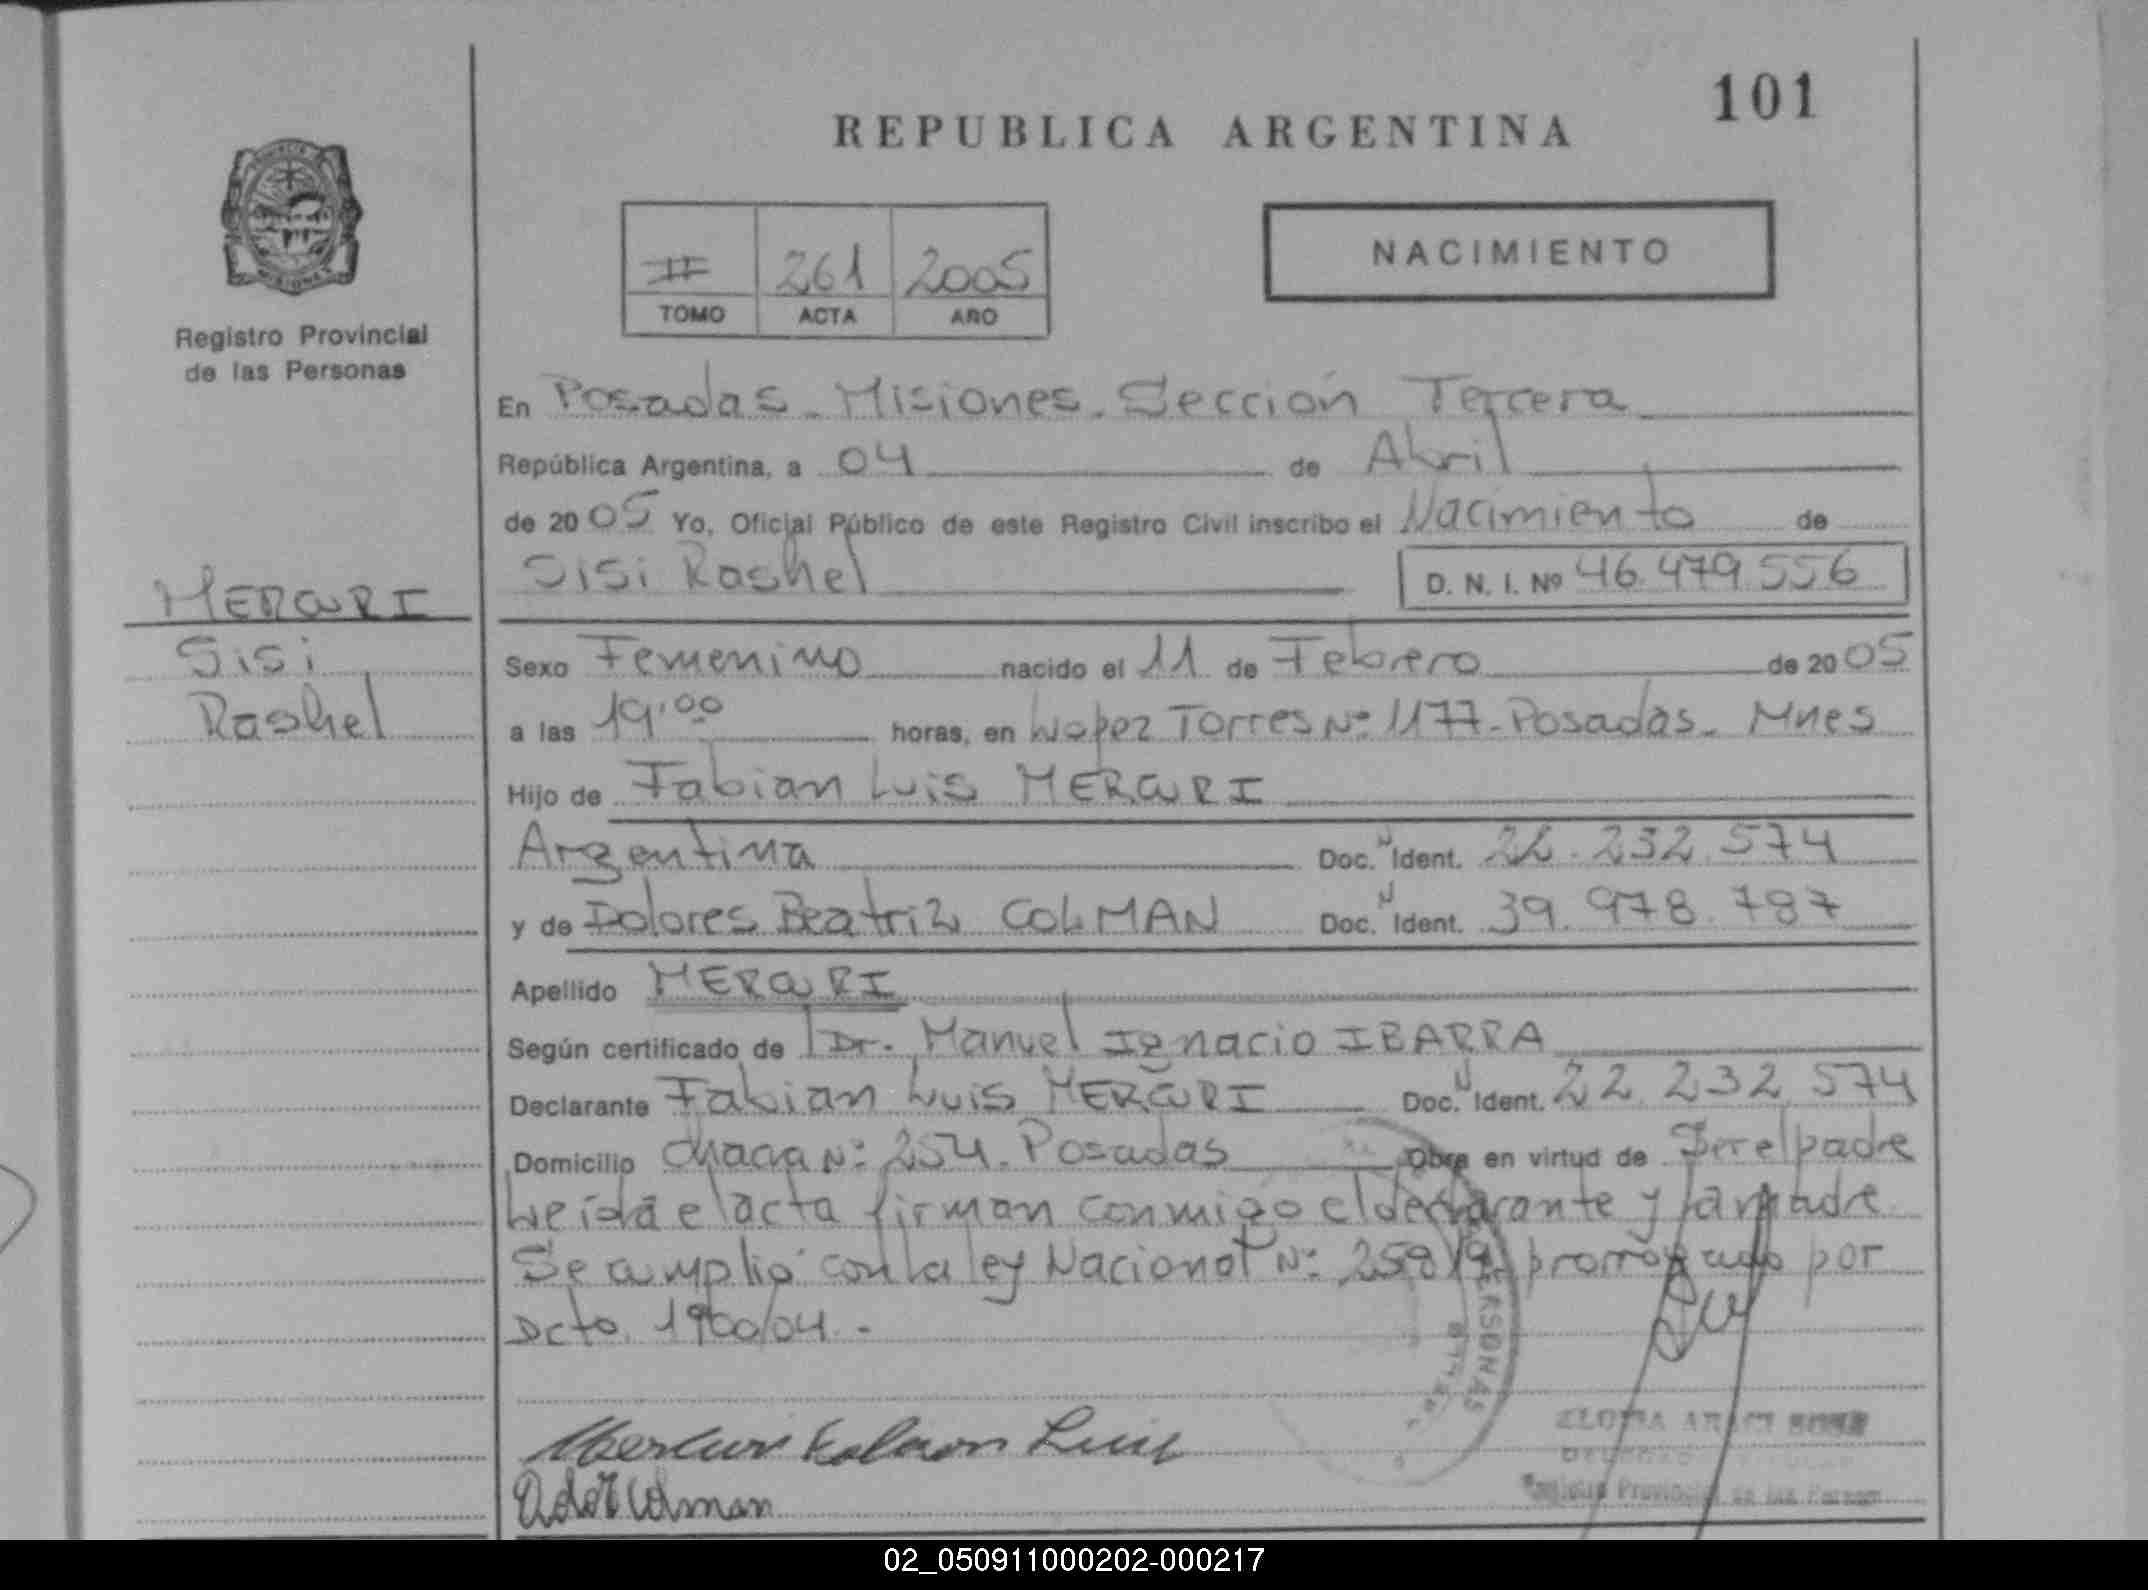 101
REPUBLICA ARGENTINA
NACIMIENTO
II 261 2005
TOMO ACTA AÑO
MISIONES
Registro Provincial
de las Personas
En Posadas - Misiones - Sección Tercera
República Argentina, a 04 de Abril
de 2005 Yo, Oficial Público de este Registro Civil inscribo el Nacimiento de
Sisi Rashel D. N. I. Nº 46.479.556
MERCURI
Sisi
Rashel
Sexo Femenino nacido el 11 de Febrero de 2005
a las 19:00 horas, en Lopez Torres Nº 1177 - Posadas - Mnes
Hijo de Fabian Luis MERCURI
Argentina Doc. N Ident. 22.232.574
y de Dolores Beatriz COLMAN Doc. N Ident. 39.978.787
Apellido MERCURI
Según certificado de Dr. Manuel Ignacio IBARRA
Declarante Fabian Luis MERCURI Doc. N Ident. 22.232.574
Domicilio Chacra Nº: 254. Posadas Obra en virtud de Ser el padre
Leída el acta firman conmigo el declarante y la madre
Se cumplió con la ley Nacional Nº: 25819 prorrogado por
Dcto. 1900/04.-
PERSONAS
Mercuri Fabian Luis
Colman
Registro Provincial de las Person
02_050911000202-000217